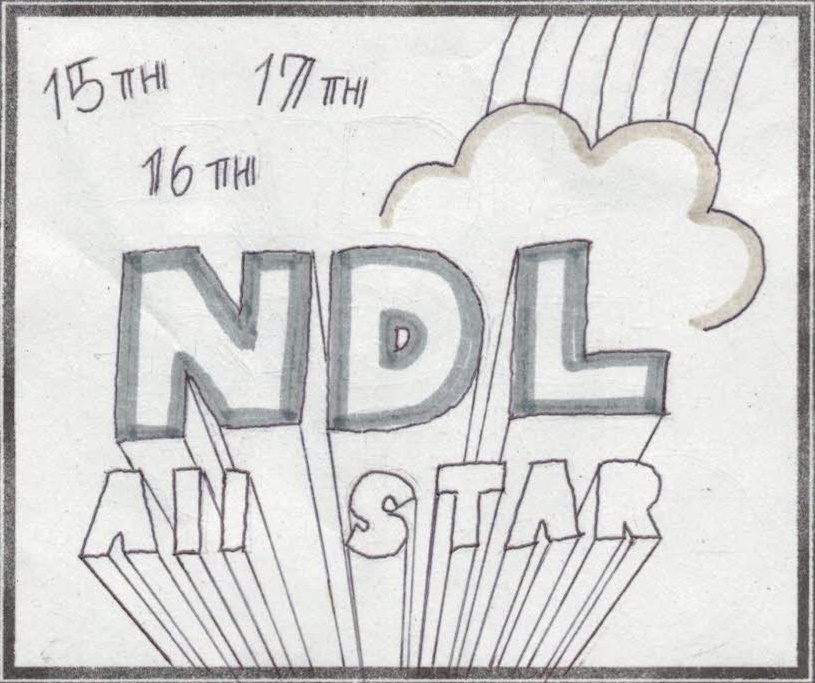 15TH 17TH
16TH
NDL
All STAR